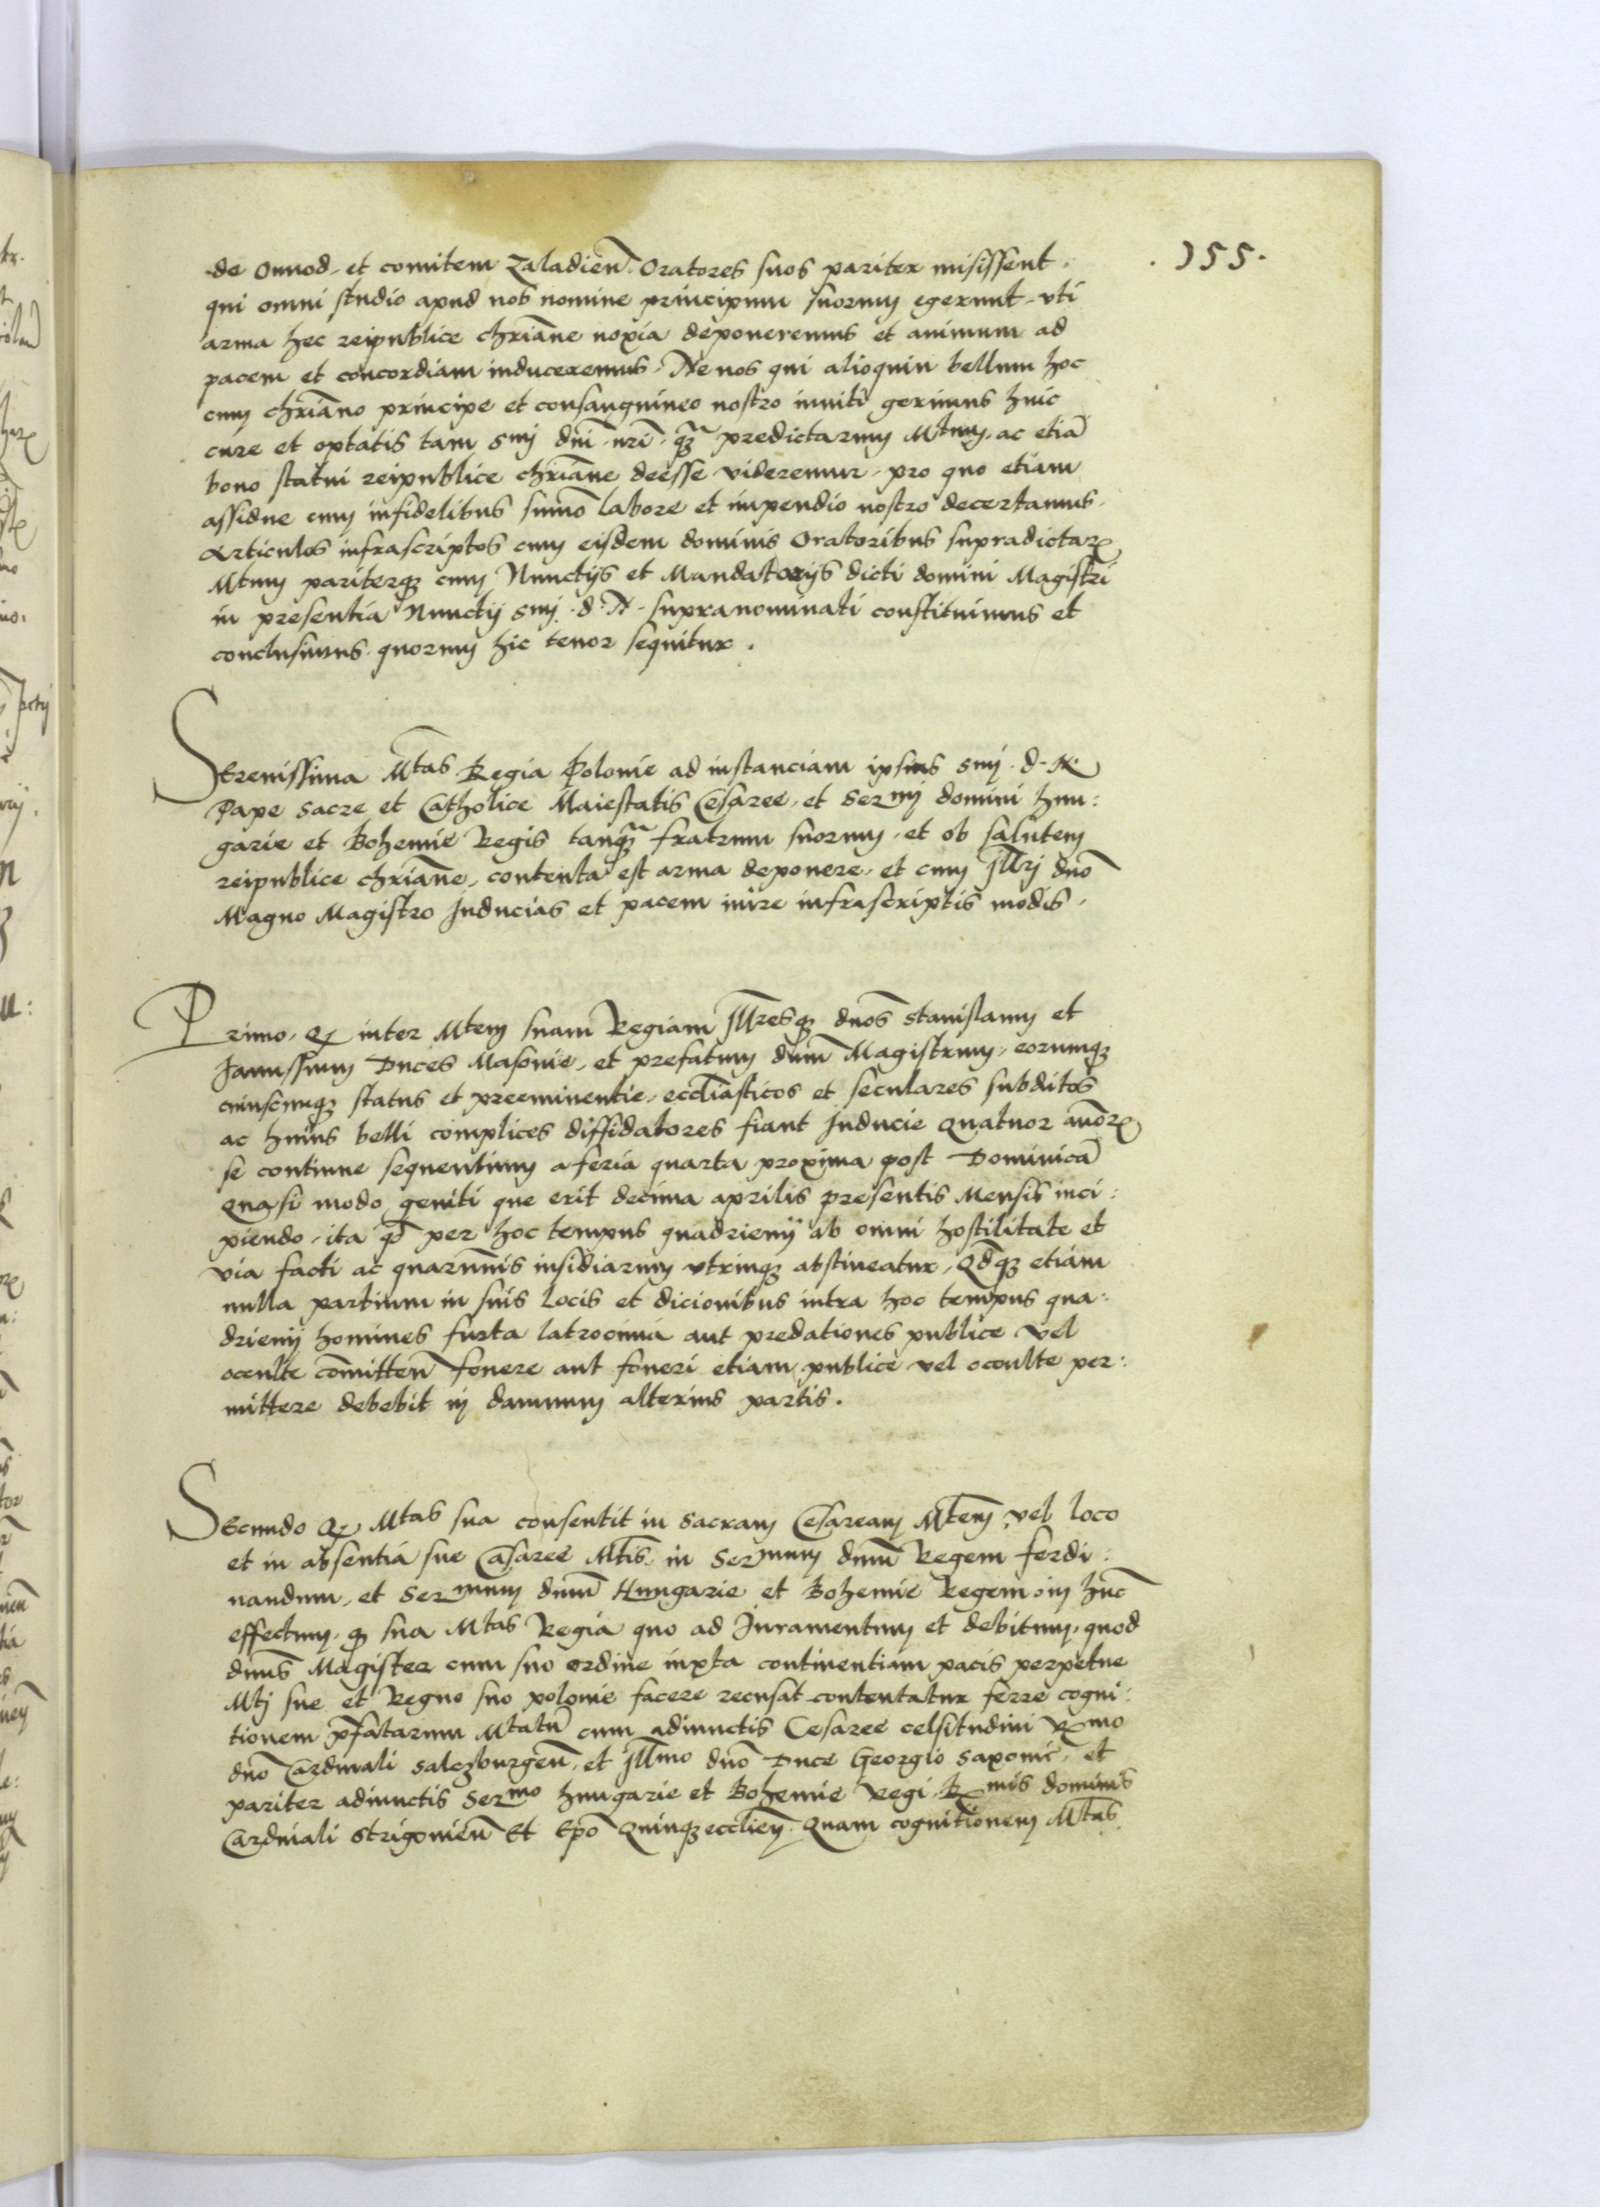 .155.
de Onnod. et comitem Zaladien. Oratores suos pariter misissent.
qui omni studio apud nos nomine principum suorum egerunt. vti
arma hec reipublice chr̄iane noxia deponeremus et animum ad
pacem et concordiam induceremus. Ne nos qui alioquin bellum hoc
cum chr̄iano principe et consanguineo nostro inuiti gerimus huic
cure et optatis tam smi dnī nrī q̄ꝫ predictarum Mtum. ac etiā
bono statui reipublice chr̄iane deesse videremur. pro quo etiam
assidue cum infidelibus sum̄o labore et impendio nostro decertamus.
Articulos infrascriptos cum eisdem dominis Oratoribus supradictaꝝ
Mtum pariterqꝫ cum Nunctijs et Mandatorijs dicti domini Magistri
in presentia Nunctij smi. d. N. supranominati constituimus et
conclusimus quorum hic tenor sequitur.
Serenissima Mtas Regia Polonie ad instanciam ipsius smi. d. N.
Pape sacre et Catholice Maiestatis Cesaree. et Sermi domini hun:
garie et Bohemie Regis tanq̄ꝫ fratrum suorum. et ob salutem
reipublice chr̄iane, contenta est arma deponere. et cum Illri dnō
Magno Magistro Inducias et pacem inire infrascriptis modis.
Primo. Qꝫ inter Mtem suam Regiam Illresqꝫ dnōs Stanislaum et
Janussium Duces Masouie. et prefatum dnūm Magistrum, eorumqꝫ
cuiuscumqꝫ status et preeminentie. eccl̄iasticos et seculares subditos
ac huius belli complices diffidatores fiant Inducie quatuor annōꝝ
se continue sequentium a feria quarta proxima post Dominicā
quasi modo geniti que erit decima aprilis presentis Mensis inci:
piendo. ita qd̄ per hoc tempus quadrienij ab omni hostilitate et
via facti ac quarum̄uis insidiarum vtrinqꝫ abstineatur. Qd̄qꝫ etiam
nulla partium in suis locis et dicionibus intra hoc tempus qua:
drienij homines furta latrocinia aut predationes publice vel
oculte com̄itten̄ fouere aut foueri etiam publice vel occulte per:
mittere debebit in damnum alterius partis.
Secundo Qꝫ Mtas sua consentit in sacram Cesaream Mtem vel loco
et in absentia sue Cesaree Mtis. in Sermum dnūm Regem ferdi:
nandum. et Sermum dnūm Hungarie et Bohemie Regem. in hūc
effectum. qꝫ sua Mtas Regia quo ad Juramentum et debitum. quod
dnūs Magister cum suo ordine iuxta continentiam pacis perpetue
Mti sue et Regno suo polonie facere recusat contentatur ferre cogni:
tionem p̄fatarum Mtatū cum adiunctis Cesaree celsitudini Rmo
dnō Cardinali salczburgen̄. et Illmo dnō Duce Georgio Saxonie. et
pariter adiunctis Sermo hungarie et Bohemie Regi Rmis dominis
Cardinali Strigonien̄ Et Epō Quinqꝫeccl̄ien. Quam cognitionem Mtas